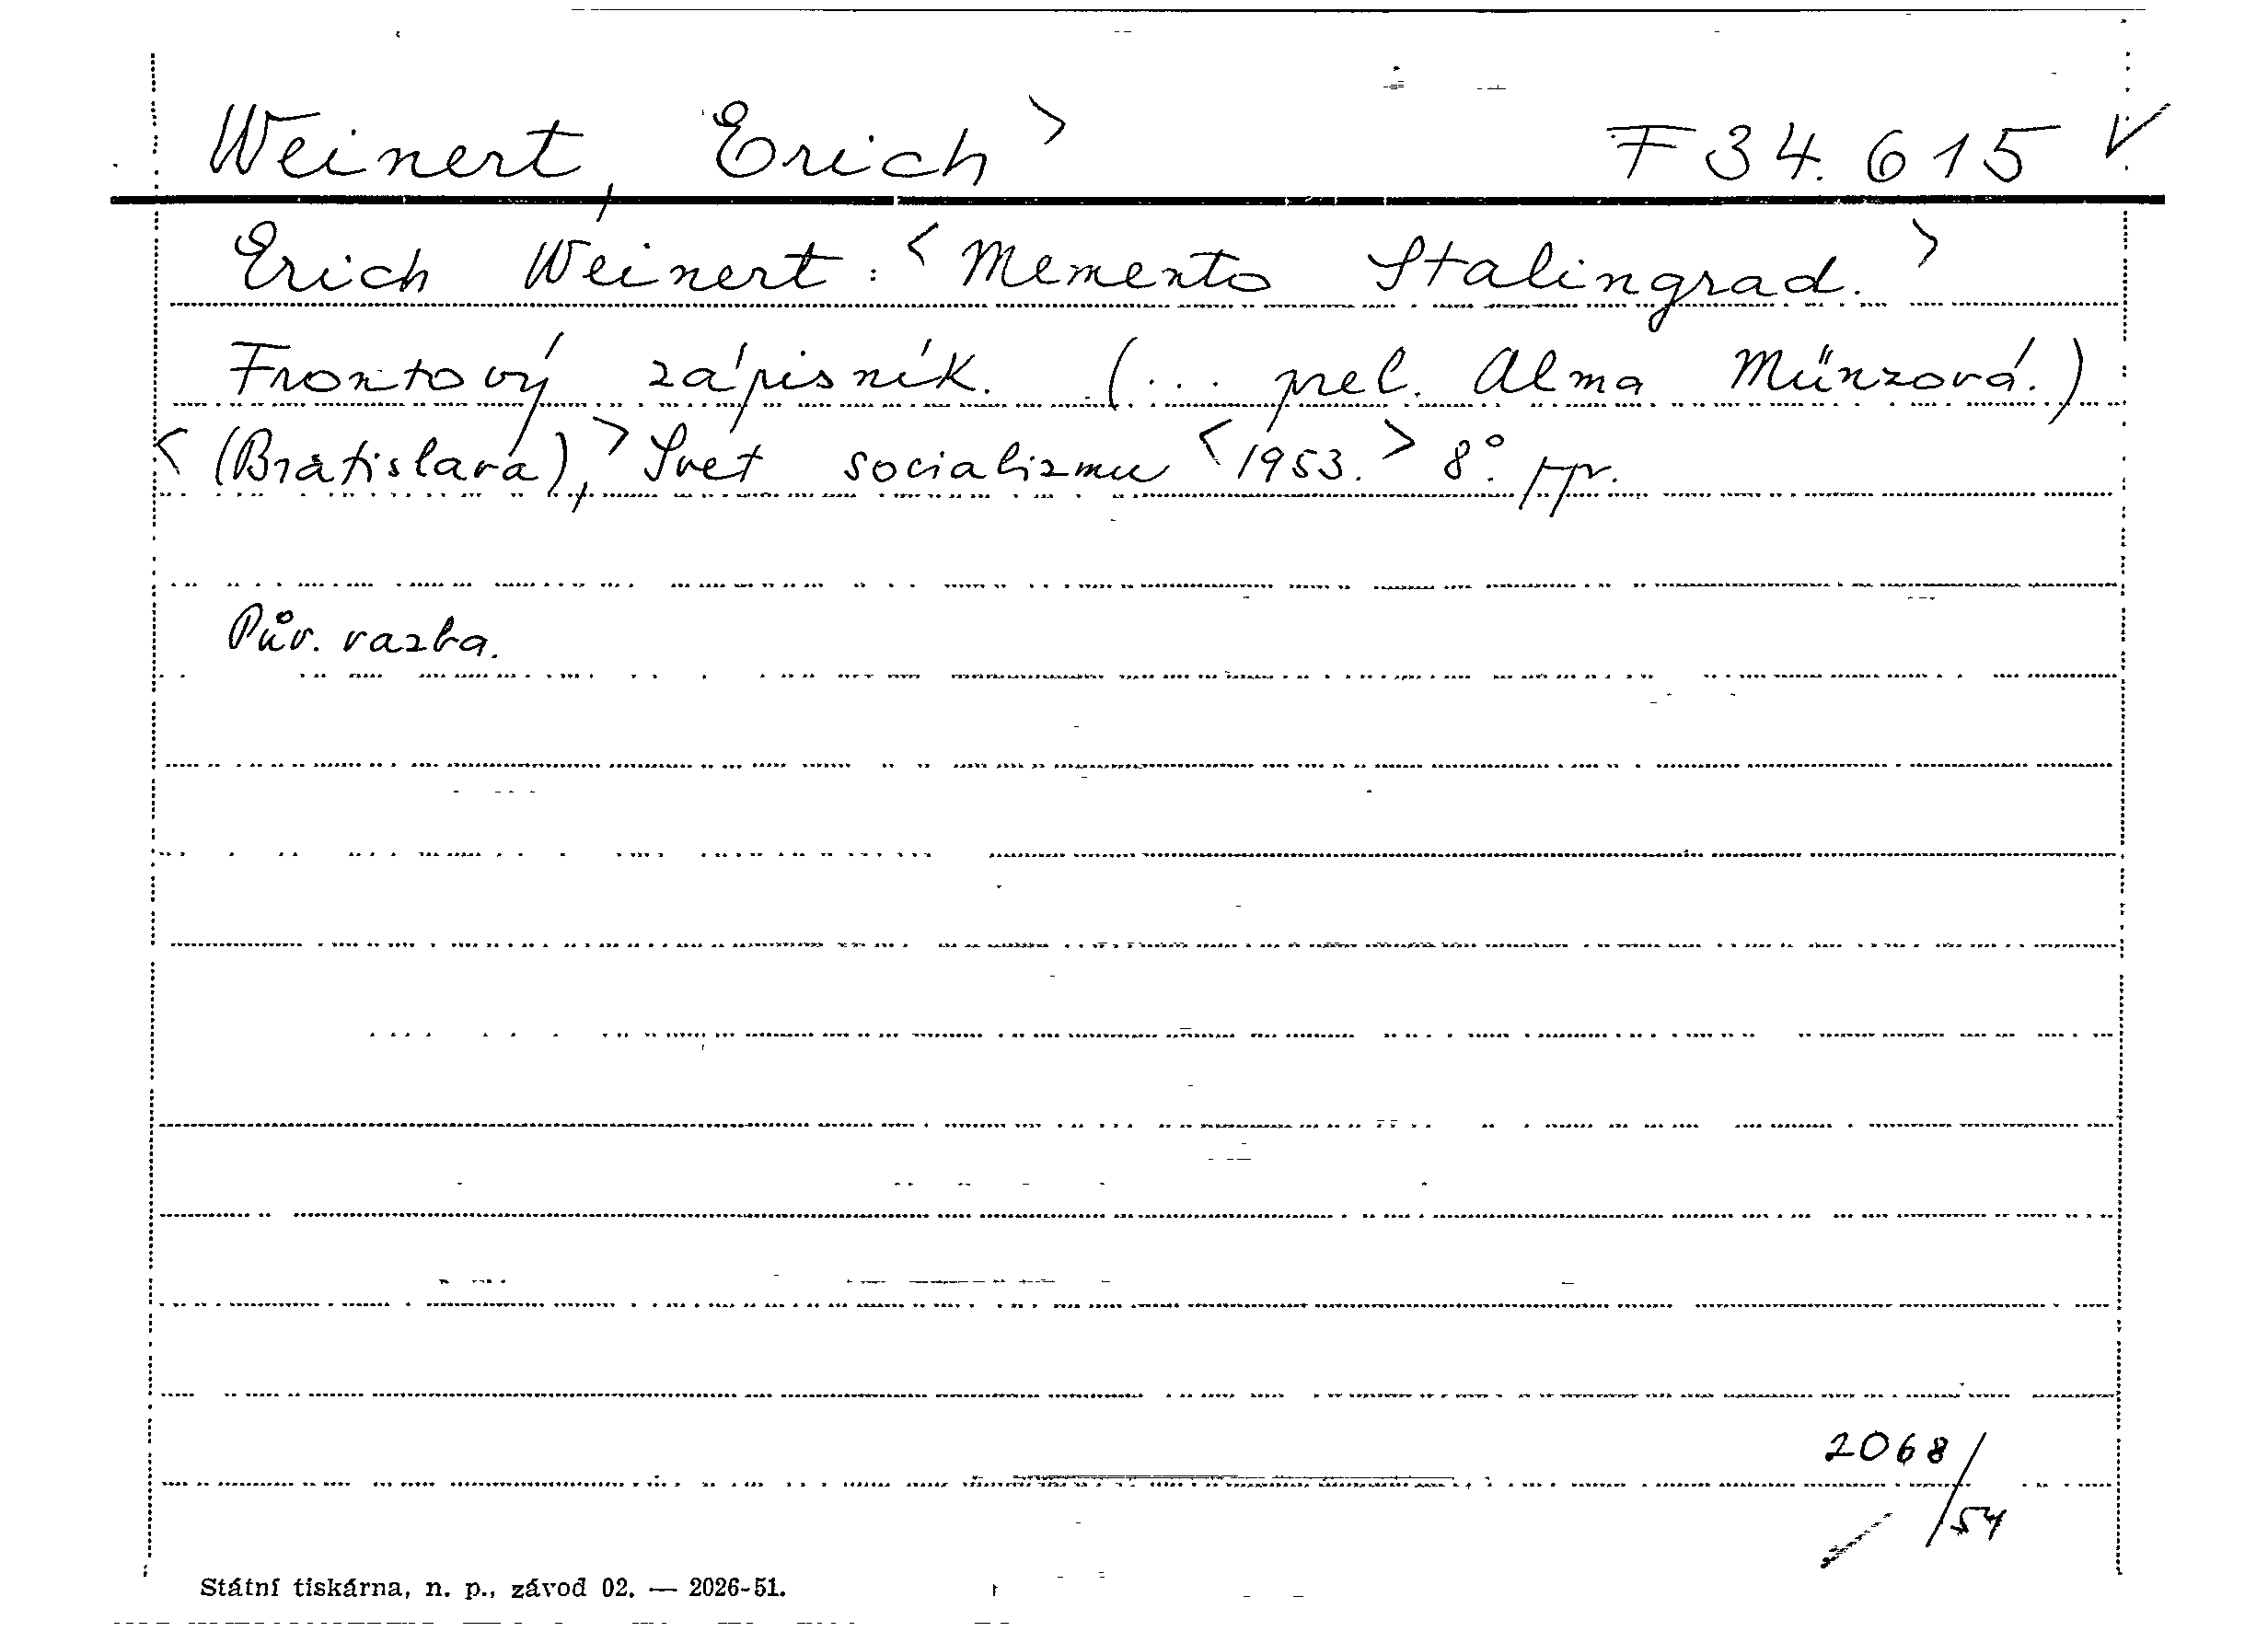 Weinert, Erich > F 34.615 V
Erich Weinert: < Memento Stalingrad. >
Frontový zápisník. (... prel. Alma Münzová.)
< (Bratislava), > Svet socializmu < 1953. > 8°. ppr.
Pův. vazba.
2068/
/54
Státní tiskárna, n. p., závod 02. — 2026-51.